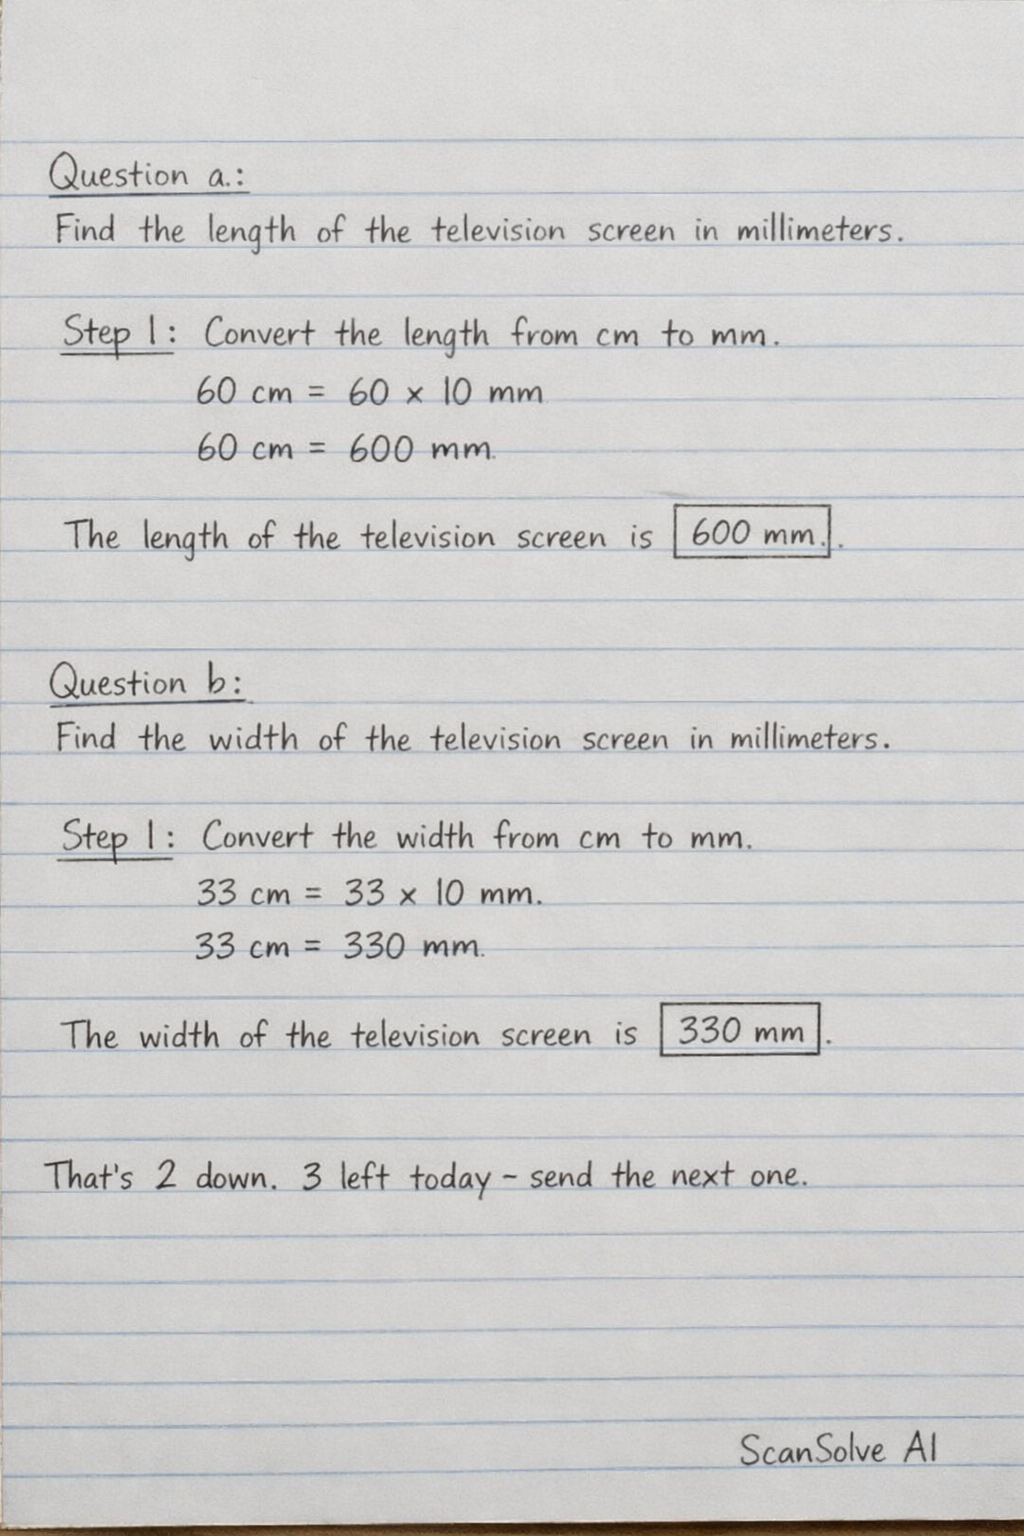 Question a.:
Find the length of the television screen in millimeters.
Step 1: Convert the length from cm to mm.
60 cm = 60 × 10 mm
60 cm = 600 mm.
The length of the television screen is 600 mm..
Question b:
Find the width of the television screen in millimeters.
Step 1: Convert the width from cm to mm.
33 cm = 33 × 10 mm.
33 cm = 330 mm.
The width of the television screen is 330 mm.
That's 2 down. 3 left today – send the next one.
ScanSolve AI